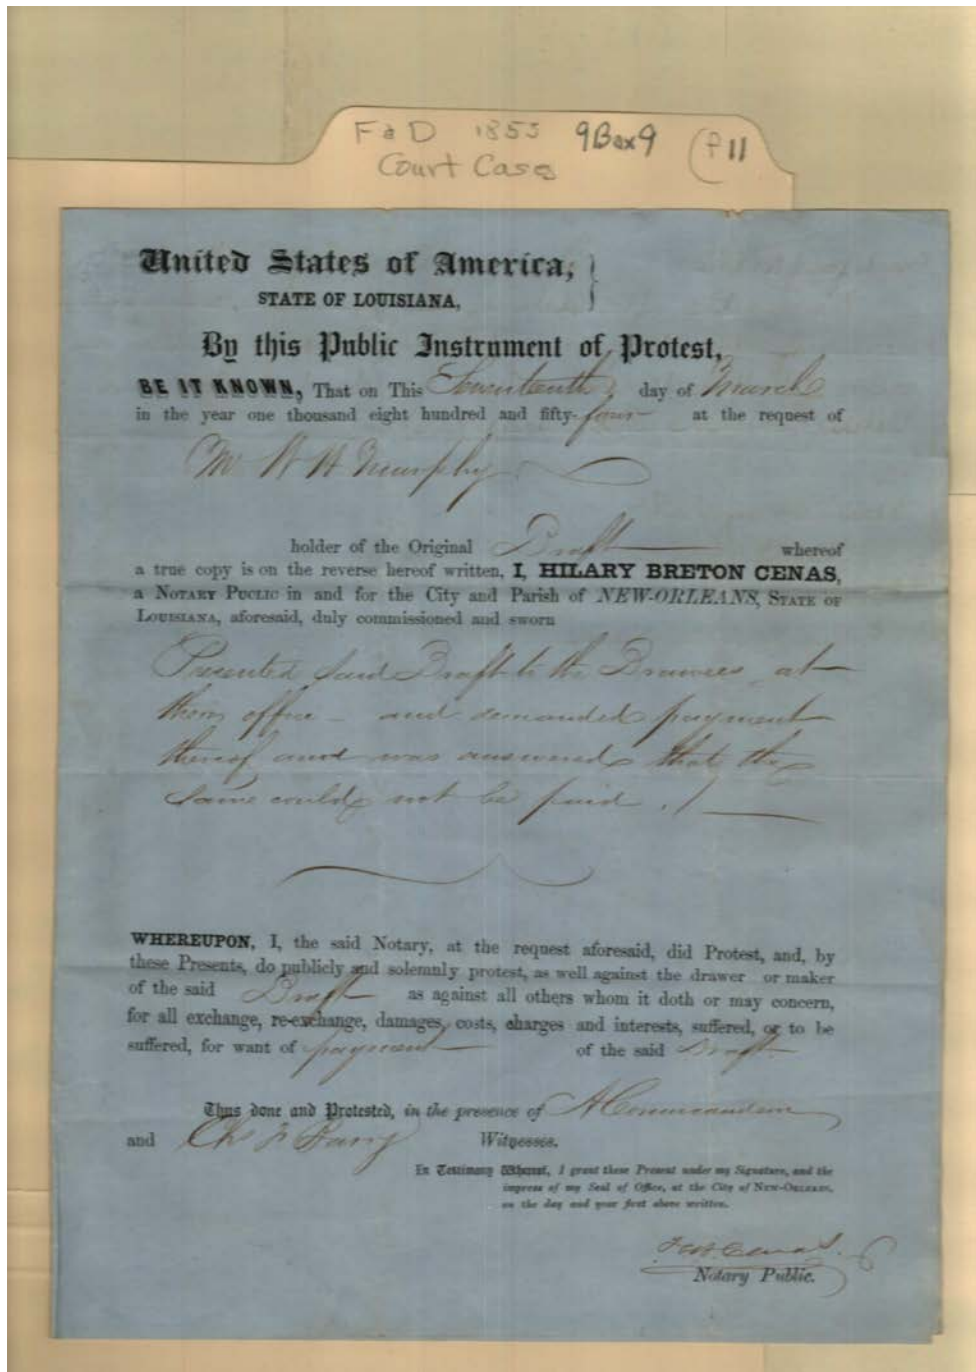 F & D 1853 9Box9 (P11
Court Cases
United States of America,
STATE OF LOUISIANA,
By this Public Instrument of Protest,
BE IT KNOWN, That on This day of March
in the year one thousand eight hundred and fifty-four at the request of
Mr Murphy
holder of the Original Draft whereof
a true copy is on the reverse hereof written, I, HILARY BRETON CENAS,
a NOTARY PUCLIC in and for the City and Parish of NEW-ORLEANS, STATE OF
LOUISIANA, aforesaid, duly commissioned and sworn
Presented said Draft to the Drawees at
their office - and demanded payment
thereof and was answered that the
same could not be paid ./
WHEREUPON, I, the said Notary, at the request aforesaid, did Protest, and, by
these Presents, do publicly and solemnly protest, as well against the drawer or maker
of the said Draft as against all others whom it doth or may concern,
for all exchange, re-exchange, damages, costs, charges and interests, suffered, or to be
suffered, for want of payment of the said Draft
Thus done and Protested, in the presence of A Commandeur
and Witnesses.
In Testimony Whereof, I grant these Present under my Signature, and the
impress of my Seal of Office, at the City of NEW-ORLEANS,
on the day and year first above written.
Cenas
Notary Public.